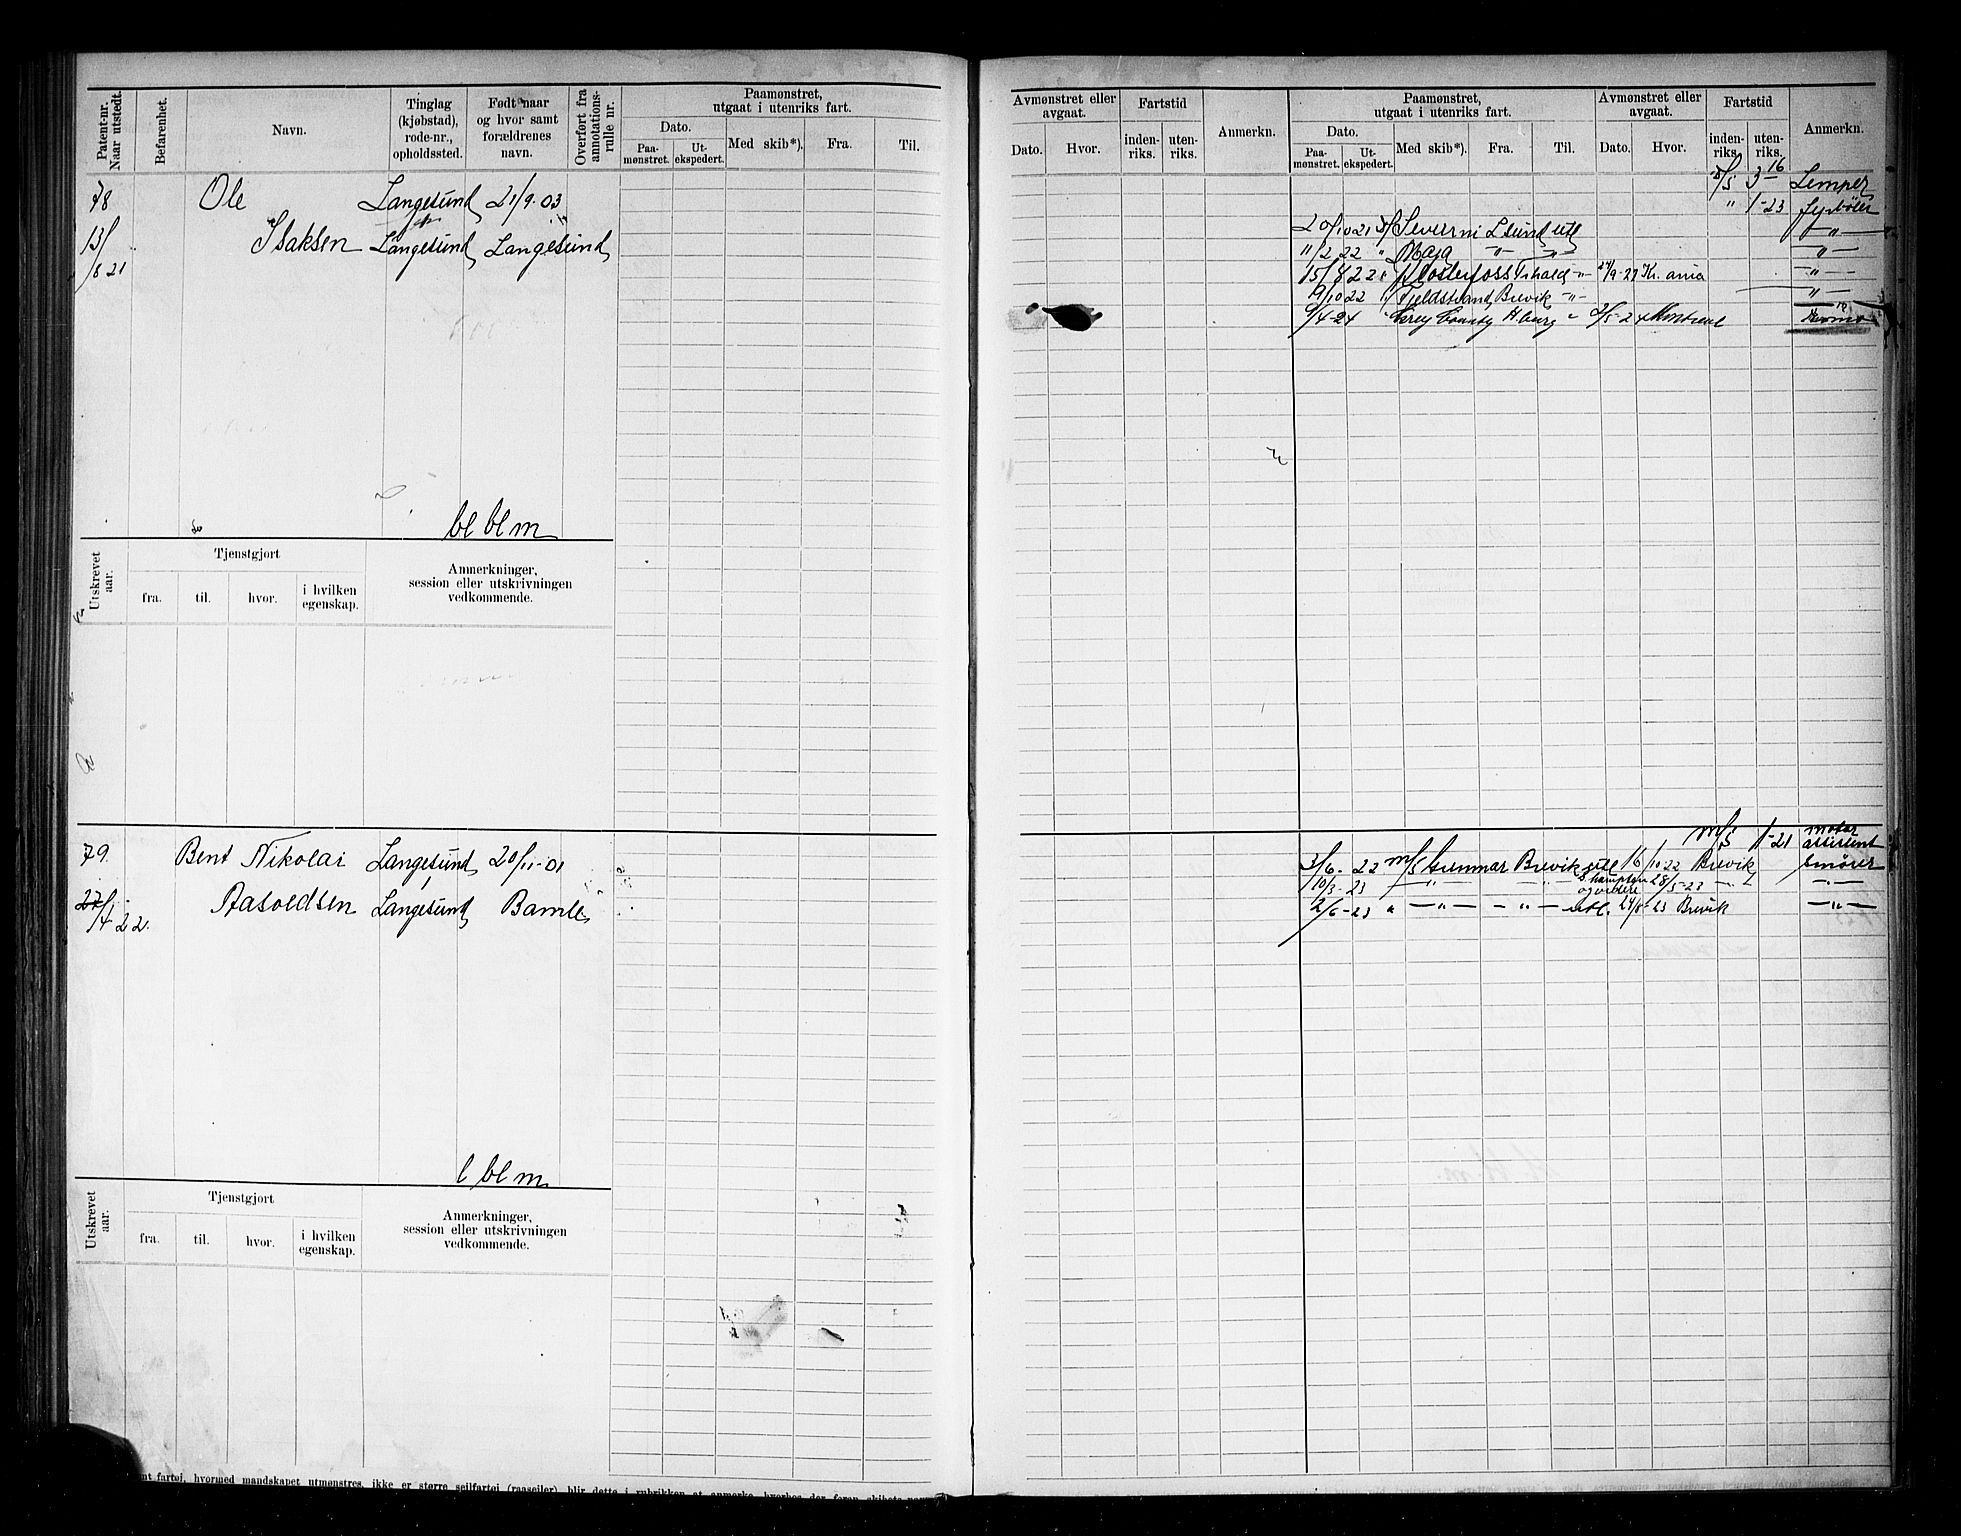 Patent-nr. Naar utstedt.
Befarenhet.
Navn.
Tinglag (kjøbstad), rode-nr., opholdssted.
Født naar og hvor samt forældrenes navn.
Overført fra annotations-rulle nr.
Paamønstret, utgaat i utenriks fart.
Dato.
Paa-mønstret.
Ut-ekspedert.
Med skib*).
Fra.
Til.
78
Ole
Langesund
21/9-03
13/8 21
Isaksen
Langesund
Langesund
bl bl m
Utskrevet aar.
Tjenstgjort
fra.
til.
hvor.
i hvilken egenskap.
Anmerkninger, session eller utskrivningen vedkommende.
79
Bent Nikolai
Langesund
20/11-01
27/4-22.
Aasoldsen
Langesund
Bamle
l bl m
Utskrevet aar.
Tjenstgjort
fra.
til.
hvor.
i hvilken egenskap.
Anmerkninger, session eller utskrivningen vedkommende.
fartøj, hvormed mandskapet utmønstres, ikke er større seilfartøj (raaseiler), blir dette i rubrikken at anmerke,
Avmønstret eller avgaat.
Dato.
Hvor.
Fartstid
inden-riks.
uten-riks.
Anmerkn.
Paamønstret, utgaat i utenriks fart.
Dato.
Paa-mønstret.
Ut-ekspedert.
Med skib*).
Fra.
Til.
Avmønstret eller avgaat.
Dato.
Hvor.
Fartstid
inden-riks.
uten-riks.
Anmerkn.
3-16 Lemper
" 1-23 Fyrbøter
20/10 21 Lsund utl -"-
11/2 22 " Maja -"- -"- -"-
15/8 22 " Klosterfoss -"- 27/9-27 Kr.ania -"-
9/10 22 " Fjeldstrand Brevik -"- -"-
9/4-24 " Grey County H.burg " 3/5-24 Montreal
m/s 1-21 motor assistent
3/6. 22 m/s Gunnar Brevik utl 16/10 22 Brevik Smører
10/3-23 -"- -"- S.hampton og videre 28/5-23 -"- -"-
2/6-23 " -"- -"- utl. 24/8-23 Brevik -"-